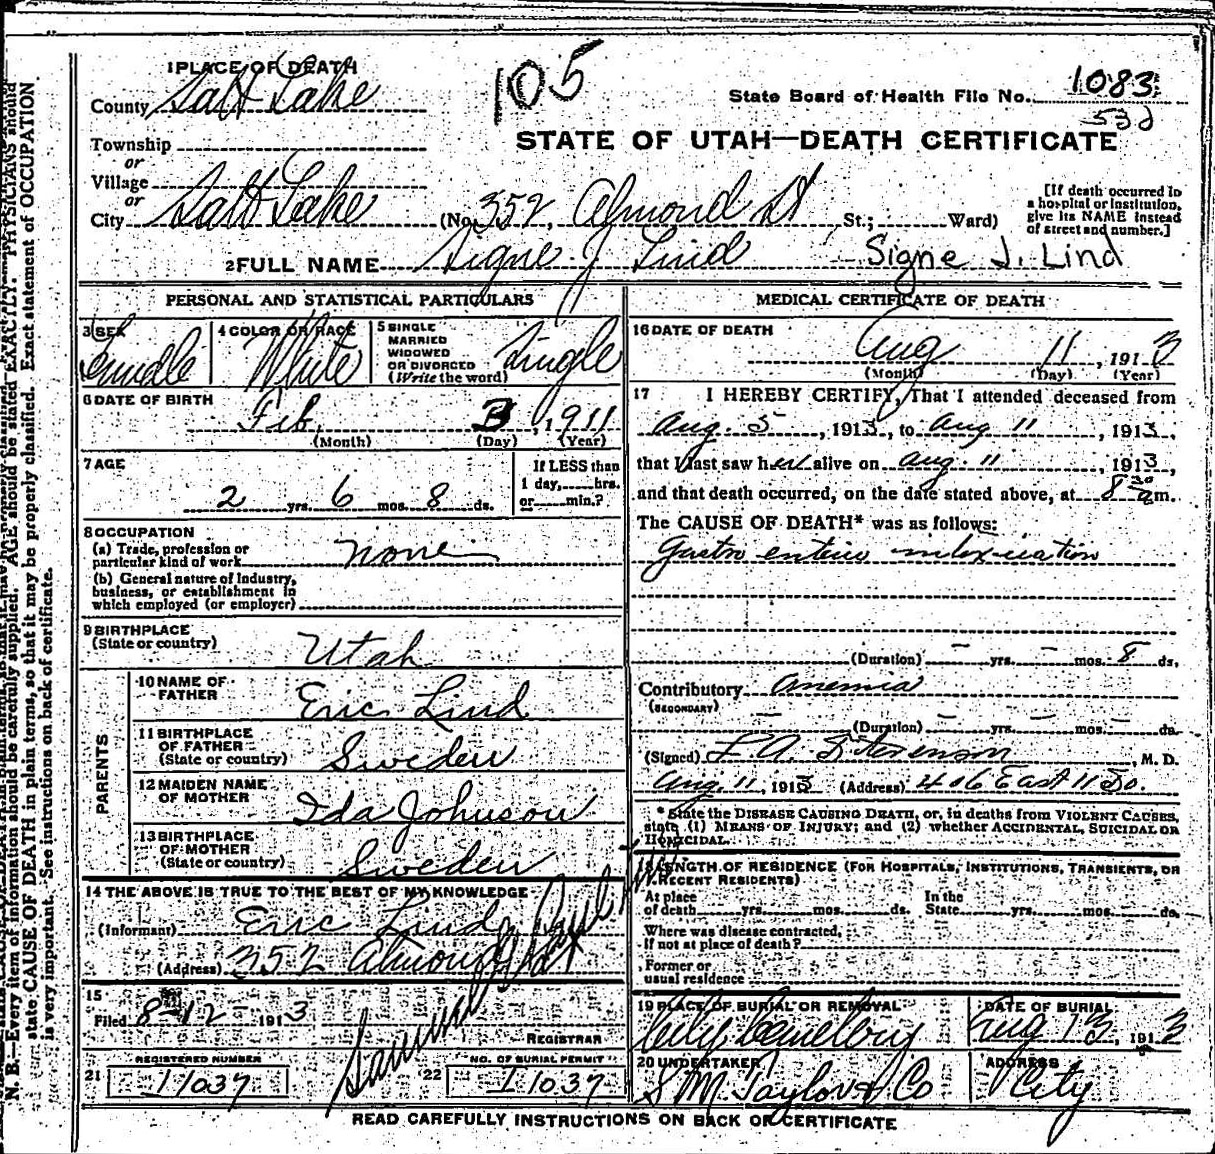 1 PLACE OF DEATH
County Salt Lake
105
State Board of Health File No. 1083
532
STATE OF UTAH—DEATH CERTIFICATE
Township
or
Village
or
City Salt Lake (No. 352, Almond St St.; Ward)
[If death occurred in a hospital or institution, give its NAME instead of street and number.]
2 FULL NAME Signe J Lind Signe J. Lind
PERSONAL AND STATISTICAL PARTICULARS
3 SEX Female
4 COLOR OR RACE White
5 SINGLE MARRIED WIDOWED OR DIVORCED (Write the word) Single
6 DATE OF BIRTH
Feb 3, 1911
(Month) (Day) (Year)
7 AGE
2 yrs. 6 mos. 8 ds.
If LESS than 1 day, hrs. or min.?
8 OCCUPATION
(a) Trade, profession or particular kind of work none
(b) General nature of Industry, business, or establishment in which employed (or employer)
9 BIRTHPLACE
(State or country) Utah
PARENTS
10 NAME OF FATHER Eric Lind
11 BIRTHPLACE OF FATHER (State or country) Sweden
12 MAIDEN NAME OF MOTHER Ida Johnson
13 BIRTHPLACE OF MOTHER (State or country) Sweden
14 THE ABOVE IS TRUE TO THE BEST OF MY KNOWLEDGE
(Informant) Eric Lind
(Address) 352 Almond St
15
Filed 8-12 1913
REGISTRAR
REGISTERED NUMBER
21 11037
NO. OF BURIAL PERMIT
22 11037
MEDICAL CERTIFICATE OF DEATH
16 DATE OF DEATH
Aug 11, 1913
(Month) (Day) (Year)
17 I HEREBY CERTIFY, That I attended deceased from
Aug. 5, 1913, to Aug 11, 1913,
that I last saw her alive on Aug. 11, 1913,
and that death occurred, on the date stated above, at 8 30 a m.
The CAUSE OF DEATH* was as follows:
Gastro enteric intoxication
(Duration) – yrs. – mos. 8 ds.
Contributory Anemia
(SECONDARY)
(Duration) – yrs. – mos. – ds.
(Signed) F. A. Stevenson, M. D.
Aug. 11, 1913 (Address) 406 East 11 So.
* State the DISEASE CAUSING DEATH, or, in deaths from VIOLENT CAUSES,
state (1) MEANS OF INJURY; and (2) whether ACCIDENTAL, SUICIDAL OR
HOMICIDAL.
18 LENGTH OF RESIDENCE (FOR HOSPITALS, INSTITUTIONS, TRANSIENTS, OR
RECENT RESIDENTS)
At place of death yrs. mos. ds. In the State yrs. mos. ds.
Where was disease contracted,
If not at place of death?
Former or
usual residence
19 PLACE OF BURIAL OR REMOVAL City Cemetery
DATE OF BURIAL Aug 13, 1913
20 UNDERTAKER S M Taylor & Co
ADDRESS City
READ CAREFULLY INSTRUCTIONS ON BACK OF CERTIFICATE
N. B.—Every item of information should be carefully supplied. AGE should be stated EXACTLY. PHYSICIANS should
state CAUSE OF DEATH in plain terms, so that it may be properly classified. Exact statement of OCCUPATION
is very important. See instructions on back of certificate.